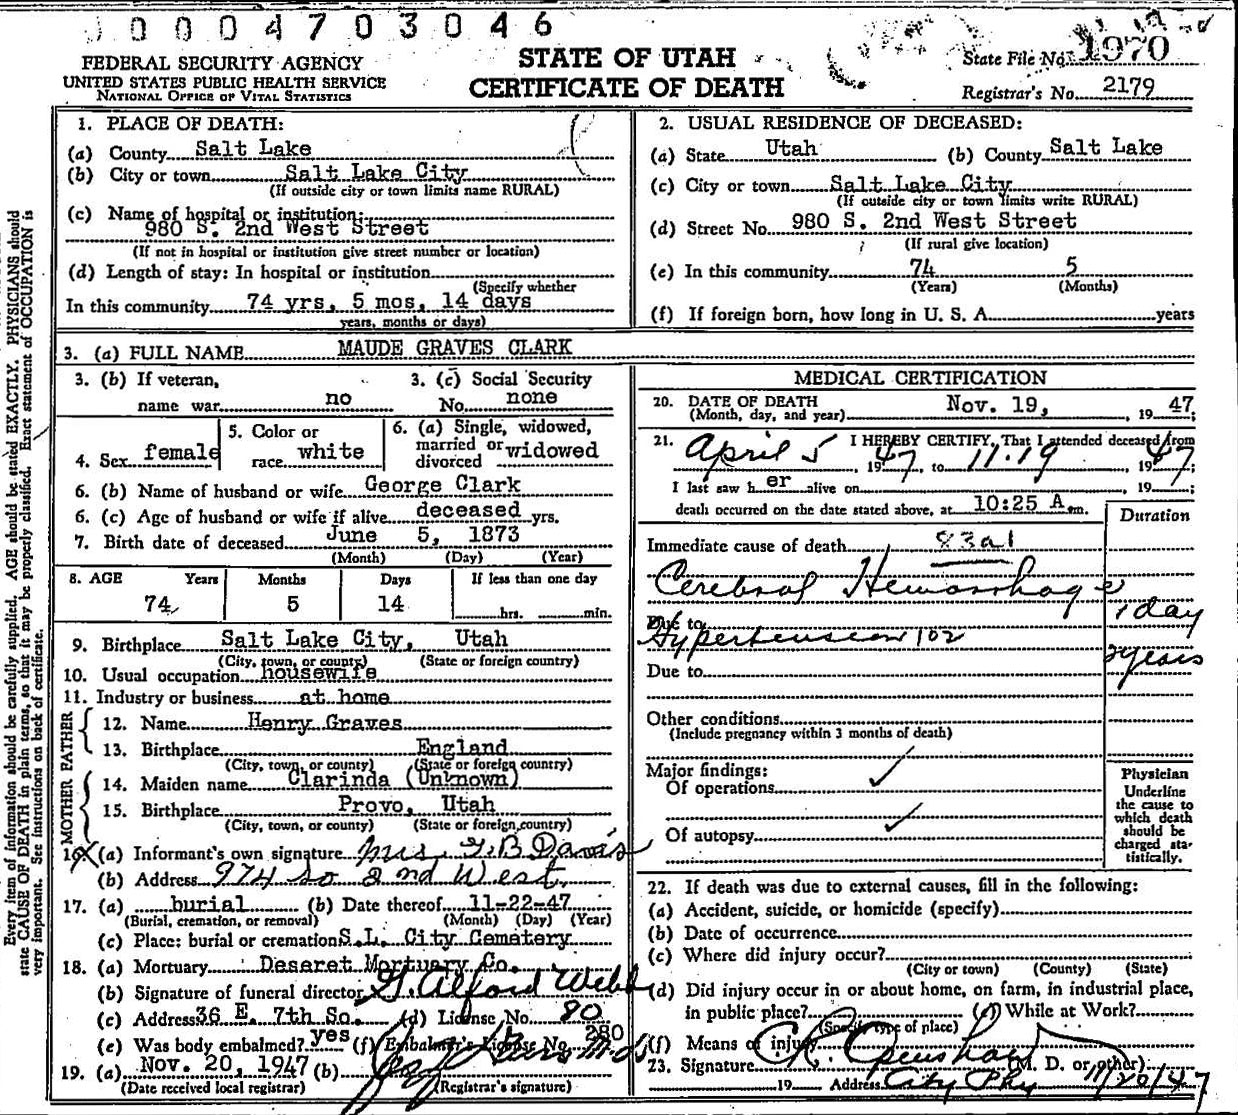 0004703046
FEDERAL SECURITY AGENCY
UNITED STATES PUBLIC HEALTH SERVICE
NATIONAL OFFICE OF VITAL STATISTICS
STATE OF UTAH
CERTIFICATE OF DEATH
State File No. 1970
Registrar's No. 2179
Every item of information should be carefully supplied. AGE should be stated EXACTLY. PHYSICIANS should
state CAUSE OF DEATH in plain terms, so that it may be properly classified. Exact statement of OCCUPATION is
very important. See instructions on back of certificate.
1. PLACE OF DEATH:
(a) County Salt Lake
(b) City or town Salt Lake City
(If outside city or town limits name RURAL)
(c) Name of hospital or institution:
980 S. 2nd West Street
(If not in hospital or institution give street number or location)
(d) Length of stay: In hospital or institution
(Specify whether
In this community 74 yrs, 5 mos, 14 days
years, months or days)
2. USUAL RESIDENCE OF DECEASED:
(a) State Utah (b) County Salt Lake
(c) City or town Salt Lake City
(If outside city or town limits write RURAL)
(d) Street No. 980 S. 2nd West Street
(If rural give location)
(e) In this community 74 5
(Years) (Months)
(f) If foreign born, how long in U. S. A. years
3. (a) FULL NAME MAUDE GRAVES CLARK
3. (b) If veteran,
name war no
3. (c) Social Security
No. none
4. Sex female
5. Color or
race white
6. (a) Single, widowed,
married or
divorced widowed
6. (b) Name of husband or wife George Clark
6. (c) Age of husband or wife if alive deceased yrs.
7. Birth date of deceased June 5, 1873
(Month) (Day) (Year)
8. AGE Years Months Days If less than one day
74 5 14 hrs. min.
9. Birthplace Salt Lake City, Utah
(City, town, or county) (State or foreign country)
10. Usual occupation housewife
11. Industry or business at home
FATHER
12. Name Henry Graves
13. Birthplace England
(City, town, or county) (State or foreign country)
MOTHER
14. Maiden name Clarinda (Unknown)
15. Birthplace Provo, Utah
(City, town, or county) (State or foreign country)
16. (a) Informant's own signature Mrs. G.B. Davis
(b) Address 974 So 2nd West
17. (a) burial (b) Date thereof 11-22-47
(Burial, cremation, or removal) (Month) (Day) (Year)
(c) Place: burial or cremation S.L. City Cemetery
18. (a) Mortuary Deseret Mortuary Co.
(b) Signature of funeral director G. Alford Webb
(c) Address 36 E. 7th So. (d) License No. 80
(e) Was body embalmed? yes (f) Embalmer's License No. 280
19. (a) Nov. 20, 1947 (b)
(Date received local registrar) (Registrar's signature)
MEDICAL CERTIFICATION
20. DATE OF DEATH
(Month, day, and year) Nov. 19, , 1947;
21. I HEREBY CERTIFY, That I attended deceased from
April 5, 1947, to 11-19, 1947;
I last saw her alive on , 19 ;
death occurred on the date stated above, at 10:25 A.m.
Duration
Immediate cause of death 83a1
Cerebral Hemorrhage 1 day
Due to
Hypertension 102 2 years
Due to
Other conditions
(Include pregnancy within 3 months of death)
Major findings:
Of operations ✓
Of autopsy ✓
Physician
Underline
the cause to
which death
should be
charged sta-
tistically.
22. If death was due to external causes, fill in the following:
(a) Accident, suicide, or homicide (specify)
(b) Date of occurrence
(c) Where did injury occur?
(City or town) (County) (State)
(d) Did injury occur in or about home, on farm, in industrial place,
in public place? (e) While at Work?
(Specify type of place)
(f) Means of injury
23. Signature C.R. Openshaw (M. D. or other)
19 Address City Phy 11/20/47